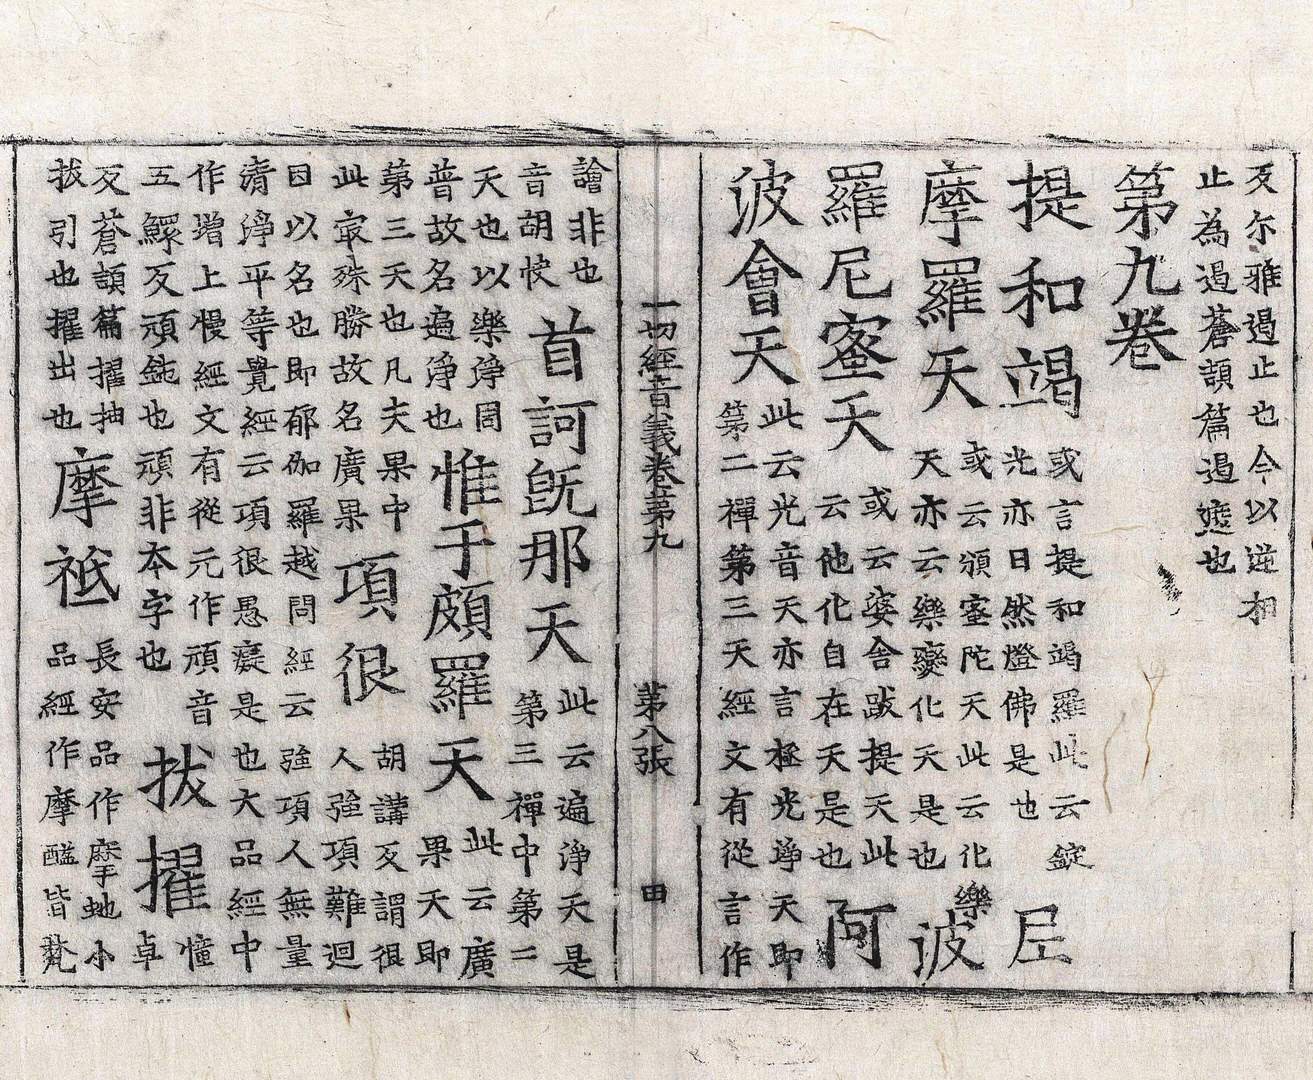 反尒雅遏止也今以逆相
止為遏蒼頡篇遏遮也
第九卷
提和竭
或言提和竭羅此云錠
光亦日然燈佛是也
尼
摩羅天
或云頻蜜陀天此云化樂
天亦云樂變化天是也
波
羅尼蜜天
或云婆舍跋提天此
云他化自在天是也
阿
波會天
此云光音天亦言極光淨天即
第二禪第三天經文有從言作
一切經音義卷第九 第八張 田
譮非也
音胡快
首訶旣那天
此云遍淨天是
第三禪中第二
天也以樂淨周
普故名遍淨也
惟于頗羅天
此云廣
果天即
第三天也凡夫果中
此㝡殊勝故名廣果
項很
胡講反謂很
人強項難迴
因以名也即郁伽羅越問經云強項人無量
清淨平等覺經云項很愚癡是也大品經中
作增上慢經文有從元作頑音
五鰥反頑鈍也頑非本字也
拔擢
憧
卓
反蒼頡篇擢抽
拔引也擢出也
摩祇
長安品作摩虵小
品經作摩醯皆梵